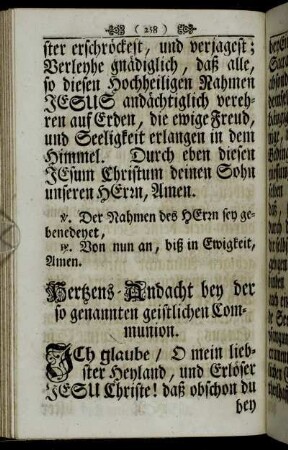 ( 258 )
ster erschröckest, und verjagest;
Verleyhe gnädiglich, daß alle,
so diesen Hochheiligen Nahmen
JESUS andächtiglich vereh-
ren auf Erden, die ewige Freud,
und Seeligkeit erlangen in dem
Himmel. Durch eben diesen
JEsum Christum deinen Sohn
unseren HErꝛn, Amen.
℣. Der Nahmen des HErꝛn sey ge-
benedeyet,
℟. Von nun an, biß in Ewigkeit,
Amen.
Hertzens-Andacht bey der
so genannten geistlichen Com-
munion.
JCh glaube / O mein lieb-
ster Heyland, und Erlöser
JESU Christe! daß obschon du
bey